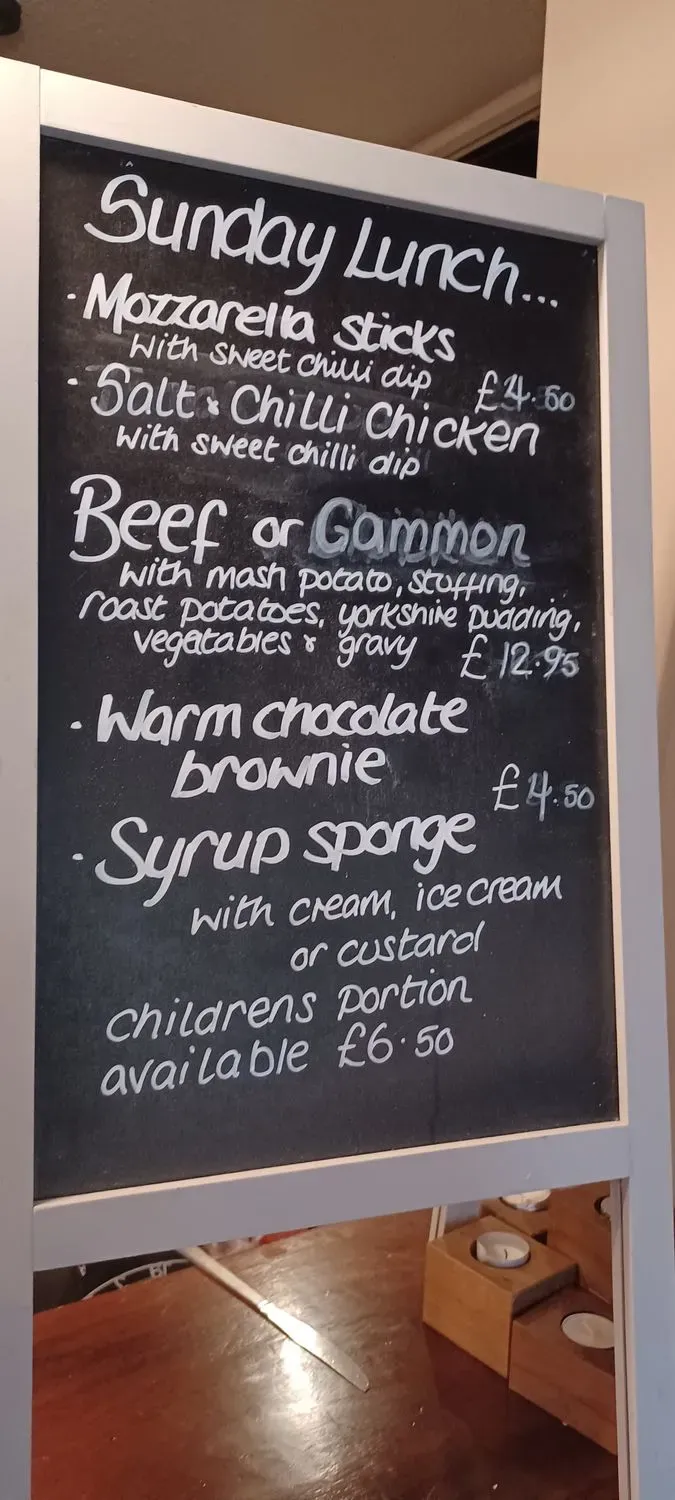 Sunday Lunch...
· Mozzarella sticks
with sweet chilli dip £4.50
· Salt & Chilli Chicken
with sweet chilli dip
Beef or Gammon
with mash potato, stuffing,
roast potatoes, yorkshire pudding,
vegetables & gravy £12.95
· Warm chocolate
brownie
£4.50
· Syrup sponge
with cream, ice cream
or custard
childrens portion
available £6.50